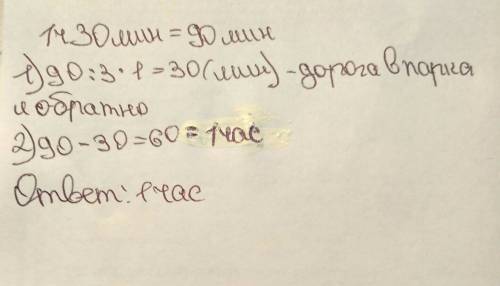 1ч 30 мин = 90 мин
1) 90 : 3 · 1 = 30 (мин) - дорога в парка
и обратно
2) 90 - 30 = 60 = 1 час
Ответ: 1 час